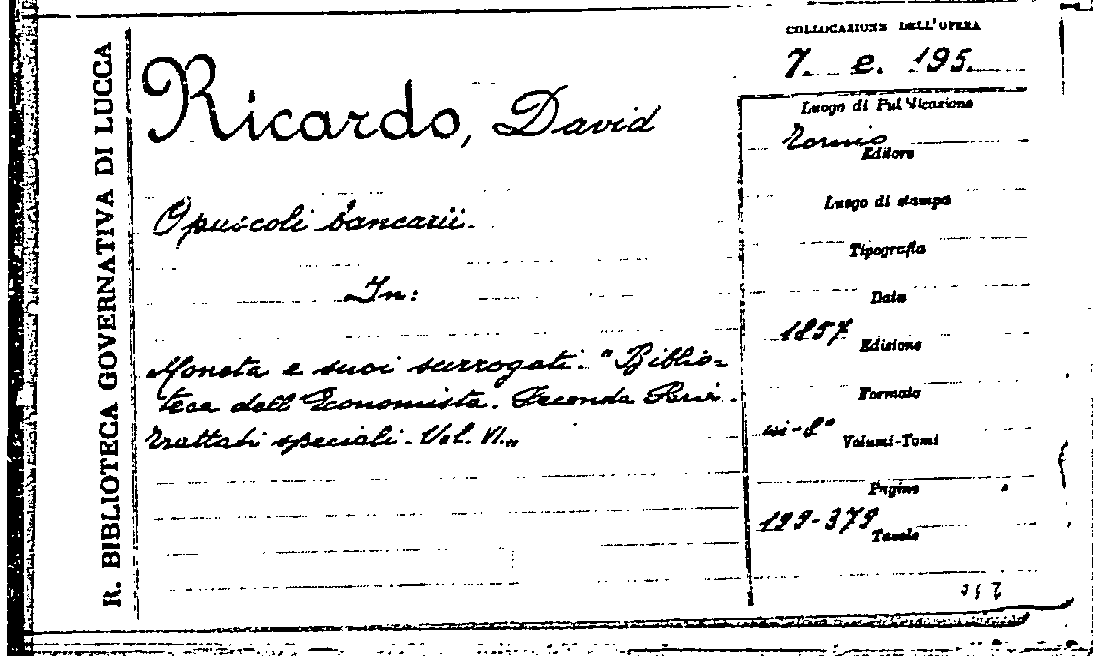 R. BIBLIOTECA GOVERNATIVA DI LUCCA
COLLOCAZIONE DELL'OPERA
7. e. 195.
Ricardo, David
Opuscoli bancarii.
In:
Moneta e suoi surrogati. "Biblio-
teca dell'Economista. Seconda Serie.
Trattati speciali. Vol. VI„
Luogo di Pubblicazione
Torino
Editore
Luogo di stampa
Tipografia
Data
1857
Edizione
Formato
in-8°
Volumi-Tomi
Pagine
199-379
Tavole